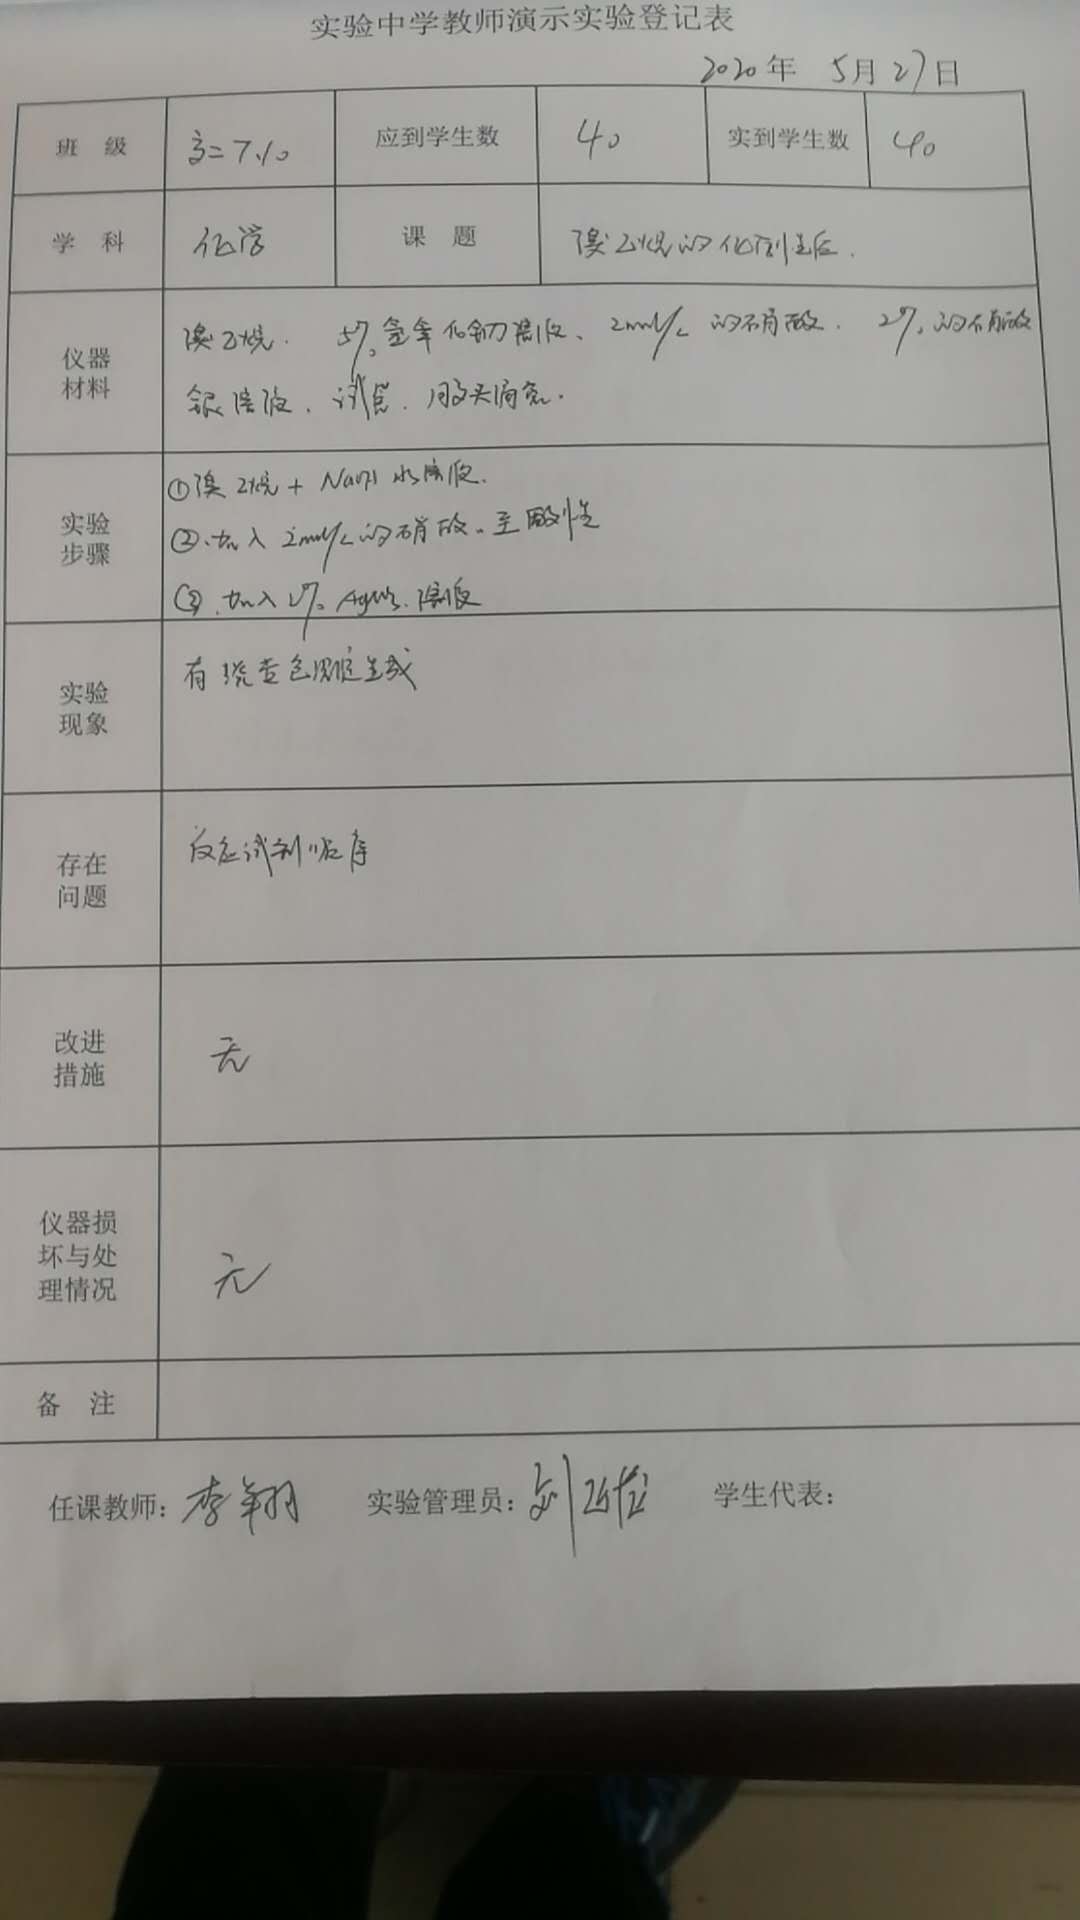 实验中学教师演示实验登记表
2020年 5月27日
班 级 高二7.10 应到学生数 40 实到学生数 40
学 科 化学 课 题 溴乙烷的化学性质.
仪器
材料
溴乙烷. 5% 氢氧化钠溶液、2mol/L 的硝酸. 2% 的硝酸
银溶液、试管、胶头滴管.
实验
步骤
①溴乙烷+ NaOH 水溶液.
②.加入 2mol/L的硝酸.至酸性
③.加入2% AgNO3.溶液
实验
现象
有浅黄色沉淀生成
存在
问题
反应试剂顺序
改进
措施
无
仪器损
坏与处
理情况
无
备 注
任课教师: 李翔 实验管理员: 刘 学生代表: